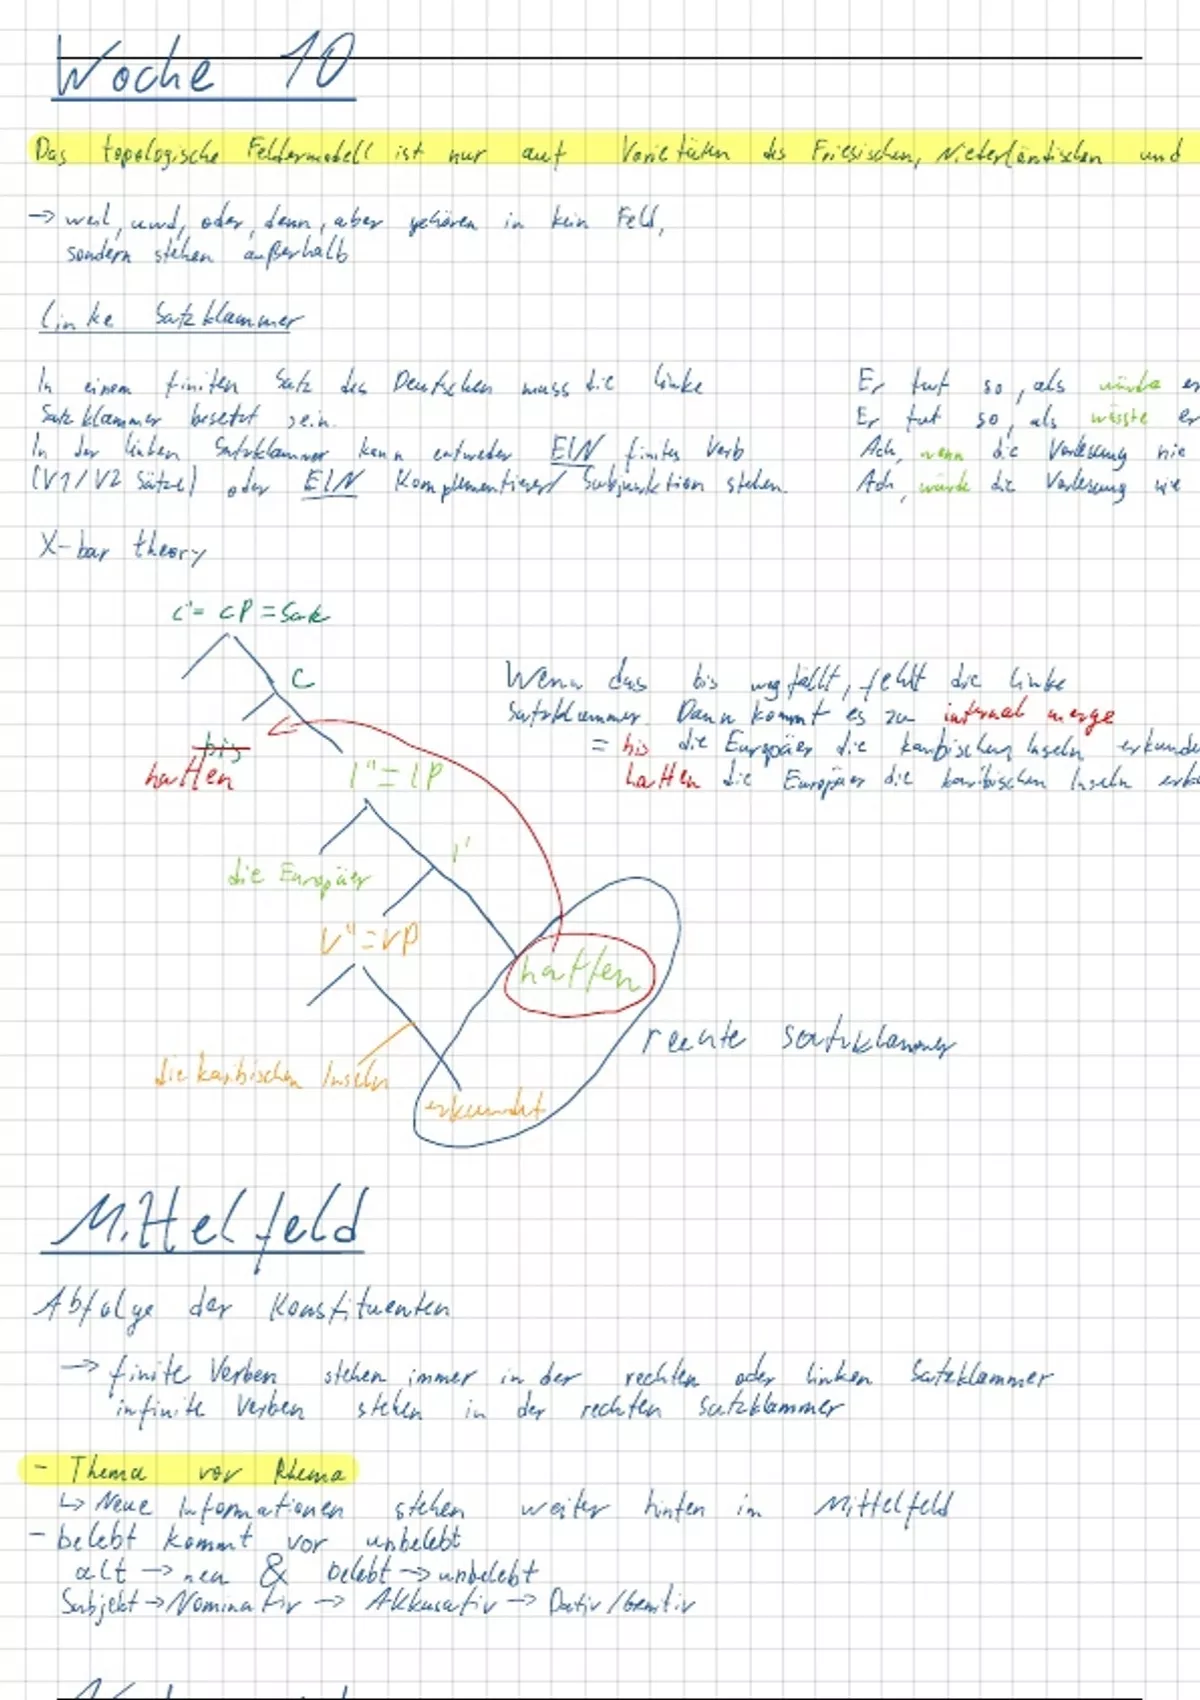 Woche 10
Das topologische Feldermodell ist nur auf Varietäten des Friesischen, Niederländischen und
→ weil, und, oder, denn, aber gehören in kein Feld,
sondern stehen außerhalb
Linke Satzklammer
In einem finiten Satz des Deutschen muss die linke
Satzklammer besetzt sein.
In der linken Satzklammer kann entweder EIN finites Verb
(V1/V2 Sätze) oder EIN Komplementierer/Subjunktion stehen.
Er tut so, als würde er
Er tut so, als wüsste er
Ach, wenn die Vorlesung nie
Ach, würde die Vorlesung nie
X-bar theory
C''= CP = Satz
C
bis
hatten
I''= IP
die Europäer
I'
V''=VP
hatten
die karibischen Inseln
erkundet
rechte Satzklammer
Wenn das bis wegfällt, fehlt die linke
Satzklammer. Dann kommt es zu internal merge
= bis die Europäer die karibischen Inseln erkunde
hatten die Europäer die karibischen Inseln erku
Mittelfeld
Abfolge der Konstituenten
→ finite Verben stehen immer in der rechten oder linken Satzklammer
infinite Verben stehen in der rechten Satzklammer
- Thema vor Rhema
↳ Neue Informationen stehen weiter hinten im Mittelfeld
- belebt kommt vor unbelebt
alt → neu & belebt → unbelebt
Subjekt → Nominativ → Akkusativ → Dativ/Genitiv